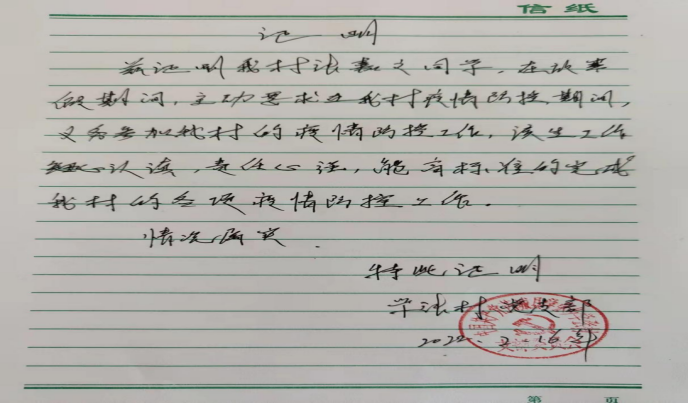 信纸
证明
兹证明我村张嘉文同学，在放寒
假期间，主动要求在我村疫情防控期间，
义务参加我村的疫情防控工作，该生工作
认真，责任心强，能高标准的完成
我村的各项疫情防控工作。
情况属实
特此证明
张村党支部
2022.2.16号
第 页